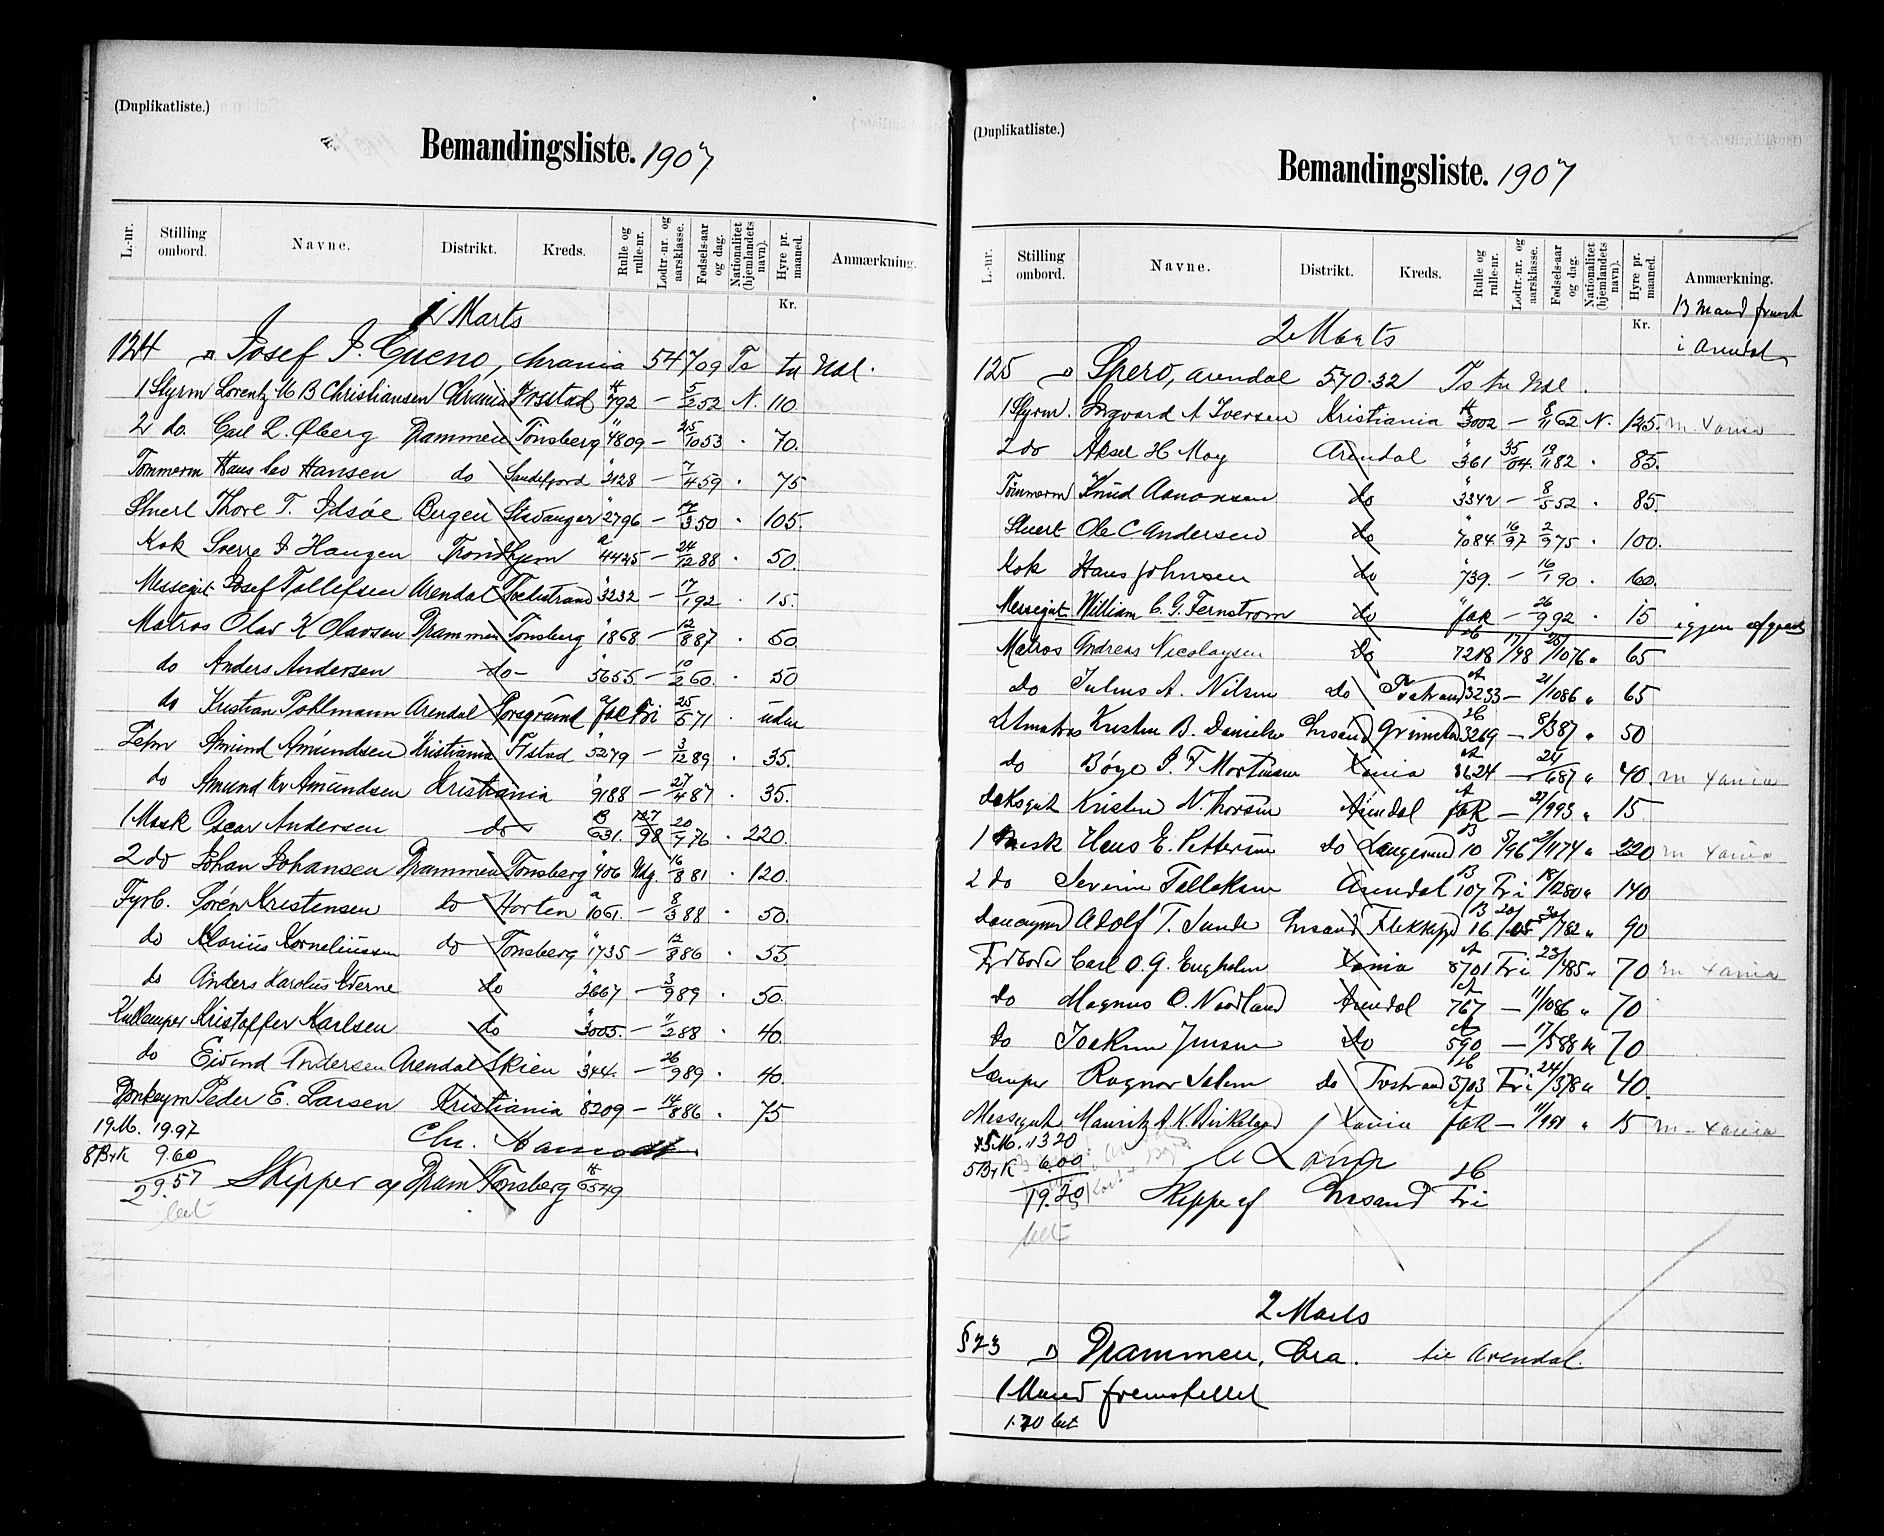 (Duplikatliste.)
Bemandingsliste. 1907
L.-nr. Stilling ombord. Navne. Distrikt. Kreds. Rulle og rulle-nr. Lodtr.-nr. og aarsklasse. Fødsels-aar og dag. Nationalitet (hjemlandets navn). Hyre pr. maaned. Anmærkning.
Kr.
2 Marts
124 D Josef J. Cueno, Chrania 547/09 Ts tu Usl.
1 Styrm Lorentz M B Christiansen Chrania Frstad A 792 — 5/2 52 N. 110
2 do. Carl L. Øberg Drammen Tønsberg " 4809 — 25/10 53 . 70.
Tømmerm Hans Leo Hansen do Sandefjord " 2128 — 7/4 59 . 75
Stuert Thore T. Idsøe Bergen Stavanger " 2796 — 17/3 50 . 105.
Kok Sverre J Haugen Trondhjem a 4425 — 24/12 88 . 50.
Messegut Josef Tollefsen Arendal Tvedestrand " 3232 — 17/1 92 . 15.
Matros Olav K Olavsen Drammen Tønsberg " 1868 — 12/8 87 . 50.
do Anders Andersen do - " 5655 — 10/2 60 . 50
do Kristian Pohlmann Arendal Porsgrund a fak Fri 25/6 71 . uden
Letm Amund Amundsen Kristiania F/stad " 5279 — 3/12 89 . 35.
do Amund Kr Amundsen Kristiania " 9188 — 27/4 87 . 35.
1 Mask Oscar Andersen do B 631. 127/98 20/9 76 . 220.
2 do Johan Johansen Drammen Tønsberg " 406 Udg. 16/8 81 . 120.
Fyrb. Søren Kristensen do Horten a 1061. — 8/3 88 . 50.
do Marius Korneliussen do Tønsberg " 1735 — 12/8 86 . 55.
do Anders Karolius Sterne do " 2667 — 3/9 89 . 50.
Kullemper Kristoffer Karlsen do " 3005. — 11/2 88 . 40.
do Eivind Andersen Arendal Skien " 344. — 26/9 89 . 40.
Donkeym Peder E. Larsen Kristiania " 8209 — 14/8 86 . 75
19 M. 19.97
Chr.
8 B+K 9.60
29.57 Skipper og Dram Tønsberg A 6549
bet
(Duplikatliste.)
Bemandingsliste. 1907
L.-nr. Stilling ombord. Navne. Distrikt. Kreds. Rulle og rulle-nr. Lodtr.-nr. og aarsklasse. Fødsels-aar og dag. Nationalitet (hjemlandets navn). Hyre pr. maaned. Anmærkning.
Kr.
13 Mand fremst
i Arendal
2 Marts
125 D Spero, Arendal 570.32 Ts tu Usl.
1 Styrm. Ingvard A Iversen Kristiania A 3002 — 8/11 62 N. 125. m. Xania
2 do Aksel H. Moy Arendal " 361 35/04. 19/11 82 . 85.
Tømmerm Knud Aanonsen do " 3342 — 8/5 52 . 85.
Stuert Ole C Andersen do " 7084 16/97 2/9 75 . 100.
Kok Hans Johnsen do " 739. — 16/1 90 . 60.
Messegut William C. G. Fernstrøm do " fak — 26/9 92 . 15 igjen afgaaet
Matros Andreas Nicolaysen do A 7218 17/98 25/10 76 " 65
do Julius A. Nilsen do Tvstrand A 3233 — 21/10 86 " 65
Ltmatros Kristen B. Danielsen Chrsand Grimstad A 3269 — 8/3 87 " 50
do Børge J. F Mortensen Xania A 8624 — 24/6 87 " 40. m Xania
Dæksgut Kristen N. Thorsen Arendal fak — 22/9 93 " 15
1 Mask Hans E. Pettersen do Langesund B 10 5/96 2/11 74 " 220 m Xania
2 do Severin Tellefsen Arendal B 107 Fri 18/12 80 " 140
Donkeymd Adolf T. Sunde Chrsand Flekkefjd B 16 20/05 30/7 82 " 90
Fyrbøder Carl O. G. Engholm Xania A 8701 Fri 23/4 85 " 70 m Xania
do Magnus O. Nordland Arendal A 767 — 11/10 86 " 70
do Joakim Jensen do A 590 — 17/5 88 " 70
Læmper Ragnar Salem do Tvstrand A 3703 Fri 24/3 78 " 40.
Messegut Mauritz A K Birkeland Xania A fak — 11/1 91 " 15 m - Xania
15 M. 13 20
5 B+K 6.00
19.20 Skipper af Chrsand Fri
bet
2 Marts
§ 23 D Drammen, Cra. til Arendal.
1 Mand fremstillet
1.20 bet